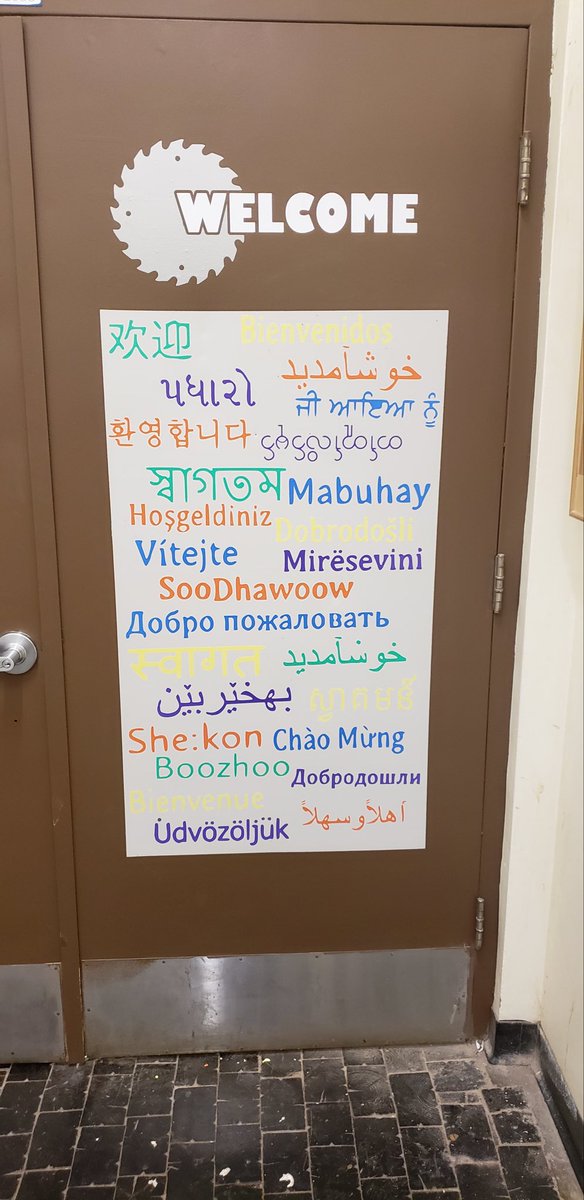 WELCOME
欢迎
Bienvenidos
خوشآمدید
પધારો
ਜੀ ਆਇਆ ਨੂੰ
환영합니다
স্বাগতম
Mabuhay
Hoşgeldiniz
Dobrodošli
Vítejte
Mirësevini
SooDhawoow
Добро пожаловать
स्वागत
خوشآمدید
بهخێربێن
ស្វាគមន៍
She:kon
Chào Mừng
Boozhoo
Добродошли
Bienvenue
أهلأوسهلأ
Üdvözöljük